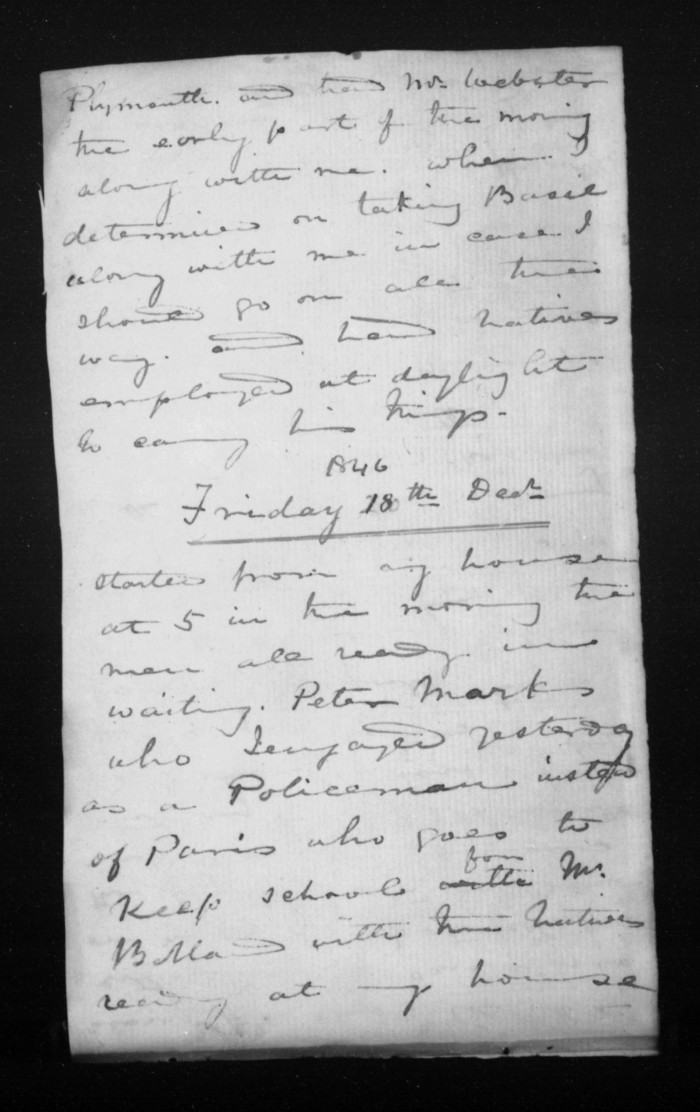 Plymouth. and had Mr. Webster
the early part of the morning
along with me. when I
determined on taking Basil
along with me in case I
should go on all the
way. and had natives
employed at daylight
to carry his things -
1846
Friday 18th Decr
started from my house
at 5 in the morning the
men all ready in
waiting. Peter Marks
who I engaged yesterday
as a Policeman instead
of Paris who goes to
Keep school with for Mr.
with the natives
ready at my house